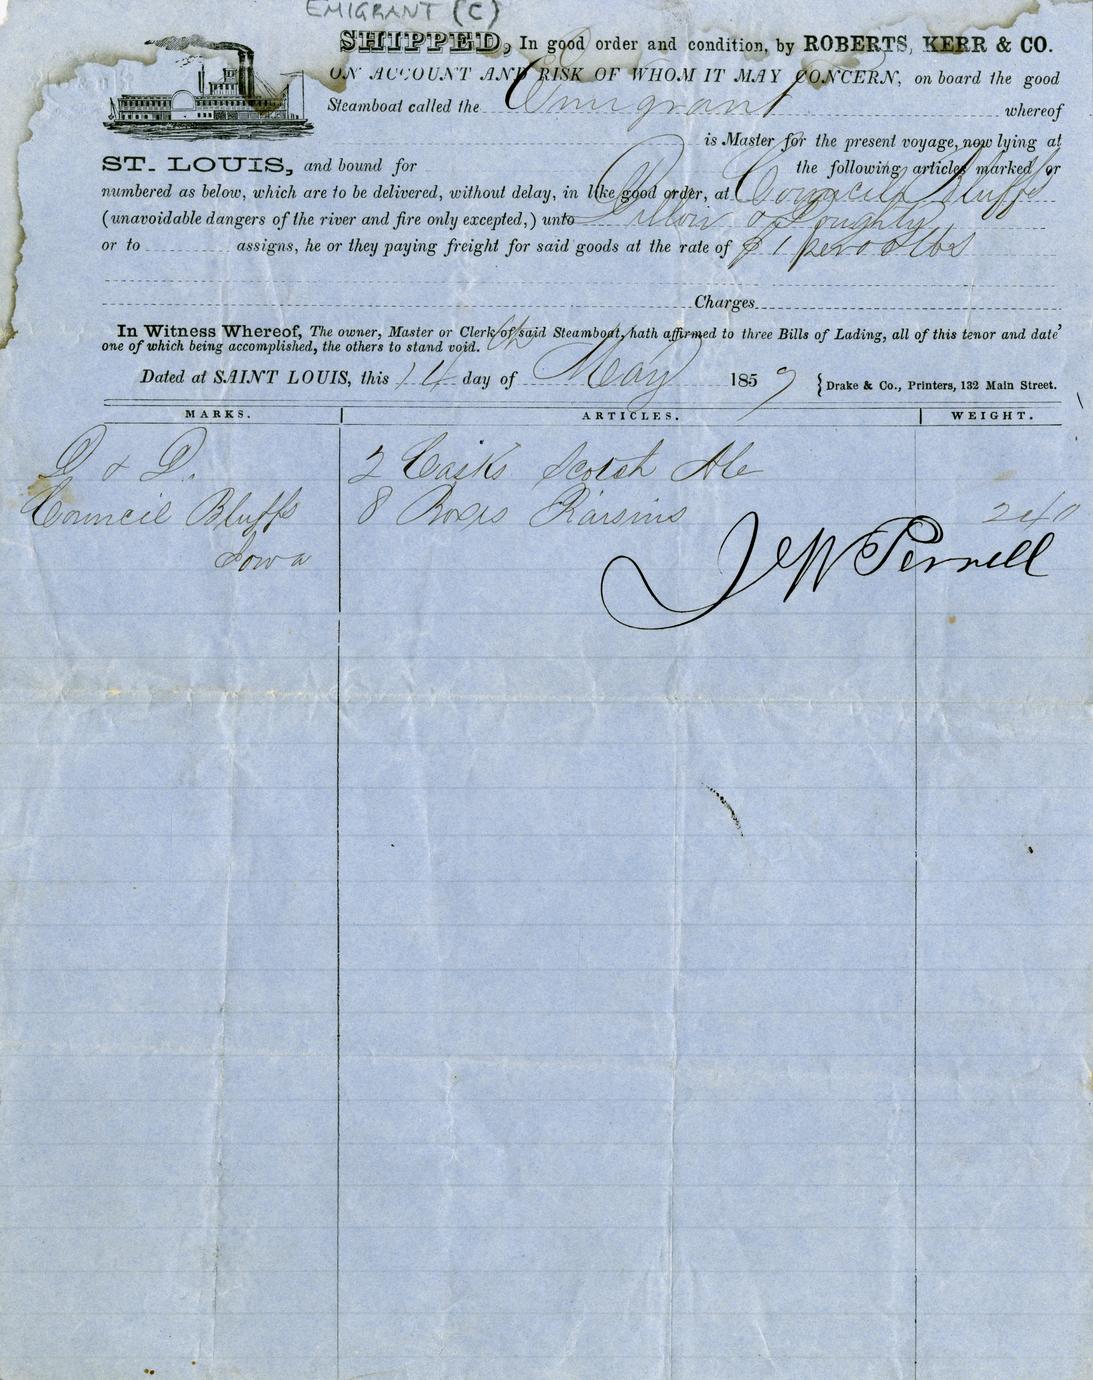 EMIGRANT (C)
SHIPPED, In good order and condition, by ROBERTS, KERR & CO.
ON ACCOUNT AND RISK OF WHOM IT MAY CONCERN, on board the good
Steamboat called the Emigrant whereof
is Master for the present voyage, now lying at
ST. LOUIS, and bound for the following articles marked or
numbered as below, which are to be delivered, without delay, in like good order, at Council Bluffs
(unavoidable dangers of the river and fire only excepted,) unto Dillon & Doughty
or to assigns, he or they paying freight for said goods at the rate of $1 per 100 lbs
Charges
In Witness Whereof, The owner, Master or Clerk of said Steamboat, hath affirmed to three Bills of Lading, all of this tenor and date'
one of which being accomplished, the others to stand void.
Dated at SAINT LOUIS, this 14th day of May 1859 { Drake & Co., Printers, 132 Main Street.
MARKS. ARTICLES. WEIGHT.
D & D. 2 Casks Scotch Ale
Council Bluffs 8 Boxes Raisins 240
Iowa